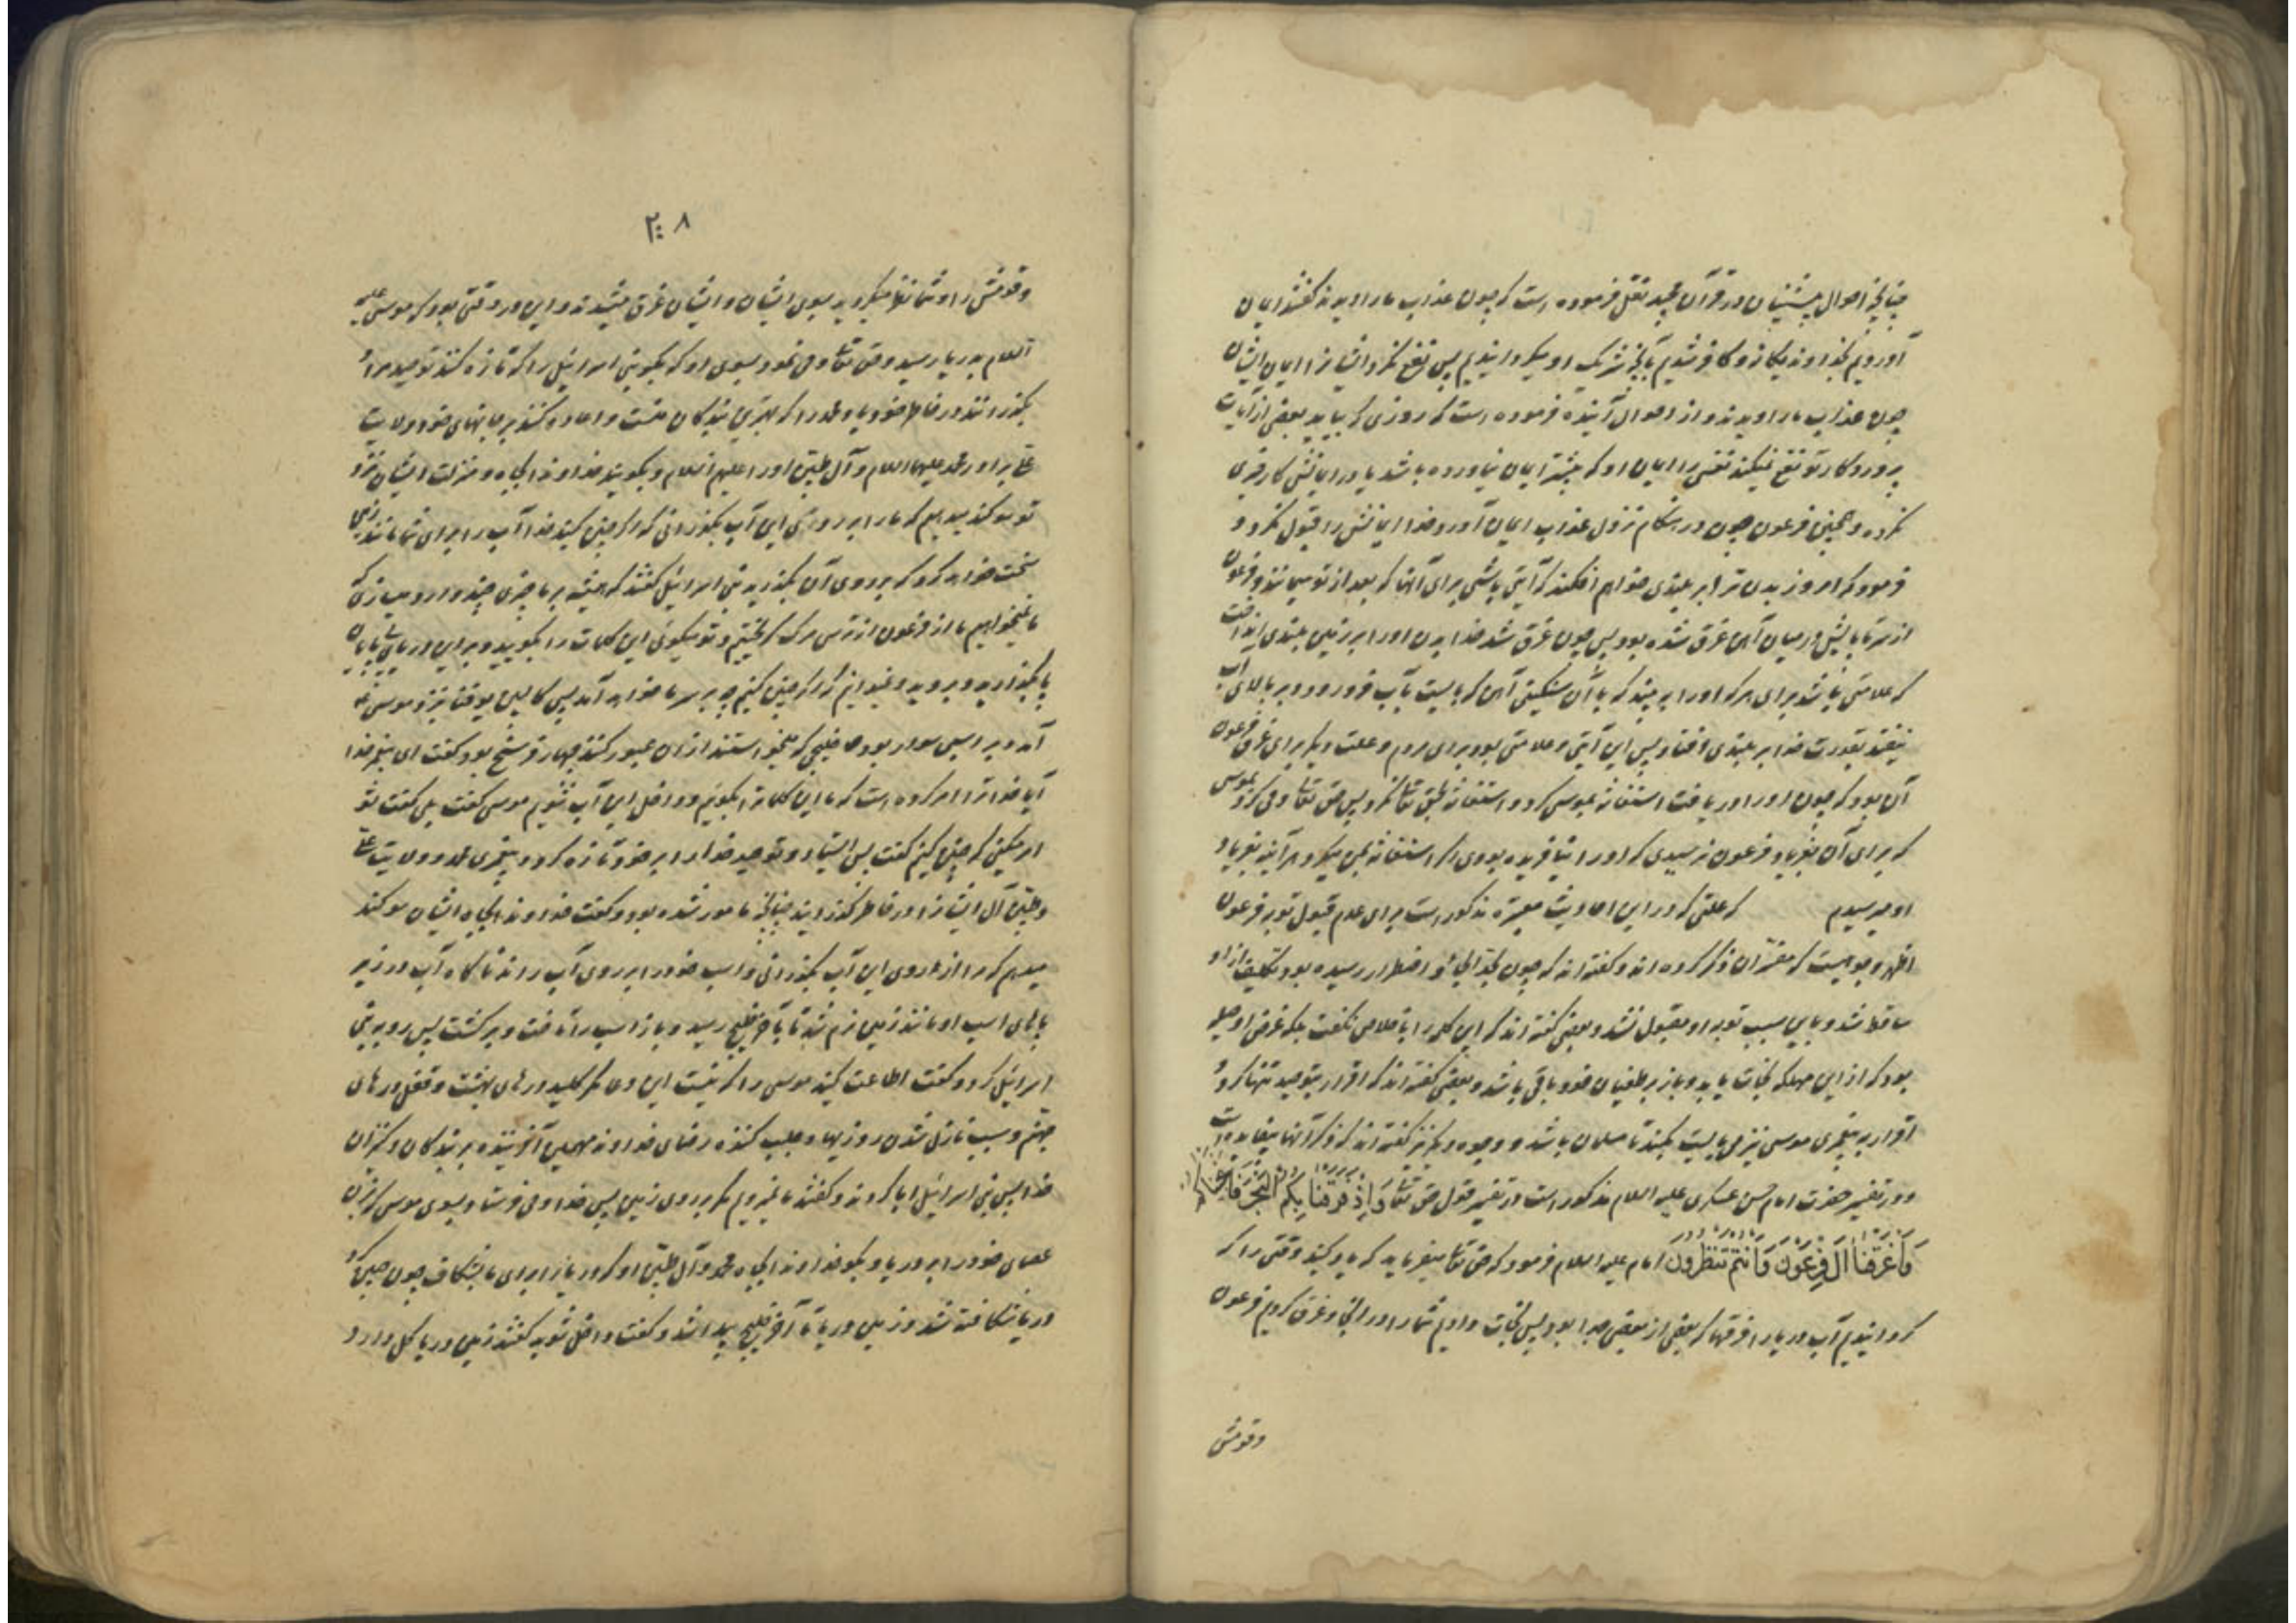 چنانچه احوال پیشینیان در قرآن مجید نقل فرموده است که چون عذاب ما را دیدند گفتند ایمان
آوردیم بخداوند یگانه و کافر شدیم بآنچه شریک او میگردانیدیم پس نفع نکرد ایشانرا ایمان ایشان
چون عذاب ما را دیدند و از احوال آینده فرموده است که روزی که بیاید بعضی از آیات
پروردگار تو نفع نمیکند نفسی را ایمان او که پیشتر ایمان نیاورده باشد یا در ایمانش کار خیری
نکرده و همچنین فرعون چون در هنگام نزول عذاب ایمان آورد خدا ایمانش را قبول نکرد و
فرمود که امروز بدن ترا بر بلندی خواهم افکند که آیتی باشی برای آنها که بعد از تو میمانند و فرعون
از سر تا پایش در میان آهن غرق شده بود پس چون غرق شد خدا بدن او را بر زمین بلندی انداخت
که علامتی باشد برای هر که او را به بیند که با آن سنگینی آهن که بایست بآب فرو رود و بر بالای آب
نیفتد بقدرت خدا بر بلندی افتاد پس این آیتی و علامتی بود برای مردم و علت دیگر برای غرق فرعون
آن بود که چون او را دریافت استغاثه بموسی کرد و استغاثه بحق تعالی نکرد پس حق تعالی وحی کرد بموسی
که برای آن بفریاد فرعون نرسیدی که او را نیافریده بودی اگر استغاثه بمن میکرد هر آینه بفریاد
او میرسیدم که علتی که در این احادیث معتبره مذکور است برای عدم قبول توبه فرعون
اظهر وجوهیست که مفسران ذکر کرده اند و گفته اند که چون بحد الجاء و اضطرار رسیده بود تکلیف از او
ساقط شد و باین سبب توبه او مقبول نشد و بعضی گفته اند که این کلمه را باخلاص نگفت بلکه غرض او حیله
بود که از این مهلکه نجات یابد و باز بر طغیان خود باقی باشد و بعضی گفته اند که اقرار بتوحید تنها کرد و
اقرار به پیغمبری موسی نیز می بایست بکند تا مسلمان باشد و وجوه دیگر نیز گفته اند که ذکر آنها بیفایده است
و در تفسیر حضرت امام حسن عسکری علیه السلام مذکور است در تفسیر قول حق تعالی وَاِذْ فَرَقْنا بِکُمُ الْبَحْرَ فَاَنْجَیْناکُمْ
وَاَغْرَقْنا آلَ فِرْعَوْنَ وَاَنْتُمْ تَنْظُرُونَ امام علیه السلام فرمود که حق تعالی میفرماید که یاد کنید وقتی را که
گردانیدیم آب دریا را فرقها که بعضی از بعضی جدا بود پس نجات دادیم شما را در آنجا و غرق کردیم فرعون
وقومش
۲۰۸
وقومش را و شما نظر میکردید بسوی ایشان و ایشان غرق میشدند و این در وقتی بود که موسی علیه
السلام بدریا رسید و حق تعالی وحی نمود بسوی او که بگو بنی اسرائیل را که تازه کنند توحید مرا و
بگذرانند در خاطر خود یاد محمد را که بهترین بندگان منست و اعاده کنند بر جانهای خود ولایت
علی برادر محمد علیهما السلام و آل طیبین او را علیهم السلام و بگویند خداوندا بجاه و منزلت ایشان نزد
تو سوگند میدهم که ما را بر روی این آب بگذرانی که اگر چنین کنید خدا آب را برای شما مانند زمین
سخت خواهد کرد که بر روی آن بگذرید بنی اسرائیل گفتند که همیشه بر ما چیزی چند وارد میسازی که
ما نمیخواهیم ما از فرعون از ترس مرگ گریختیم و تو میگوئی این کلمات را بگویید و بر این دریای بی پایان
پا بگذارید و بروید و نمیدانیم که اگر چنین کنیم چه بر سر ما خواهد آمد پس کالب بن یوقنا نزد موسی علیه
آمد و بر اسبی سوار بود و خلیجی که میخواستند از آن عبور کنند چهار فرسخ بود گفت ای پیغمبر خدا
آیا خدا ترا امر کرده است که ما این کلمات را بگوئیم و داخل این آب شویم موسی گفت بلی گفت تو
امر میکنی که چنین کنم گفت بلی پس ایستاد و توحید خدا را بر خود تازه کرد و پیغمبری محمد و ولایت علی
و طیبین آل ایشانرا در خاطر گذرانید چنانچه مامور شده بود و گفت خداوندا بجاه ایشان سوگند
میدهم که مرا از روی این آب بگذرانی و اسب خود را بر روی آب راند ناگاه آب در زیر
پاهای اسب او مانند زمین نرم شد تا بآخر خلیج رسید و باز اسب را تاخت و برگشت پس رو به بنی
اسرائیل کرد و گفت اطاعت کنید موسی را که نیست این دعا مگر کلید درهای بهشت و قفل درهای
جهنم و سبب نازل شدن روزیها و جلب کننده رضای خداوند مهیمن آفریننده بر بندگان و کنیزان
خدا پس بنی اسرائیل ابا کردند و گفتند ما نمیرویم مگر بر روی زمین پس خدا وحی فرستاد بسوی موسی که بزن
عصای خود را بر دریا و بگو خداوندا بجاه محمد و آل طیبین او که دریا را برای ما بشکاف چون چنین کرد
دریا شکافته شد و زمین دریا تا آخر خلیج پیدا شد و گفت داخل شوید گفتند زمین دریا گل دارد